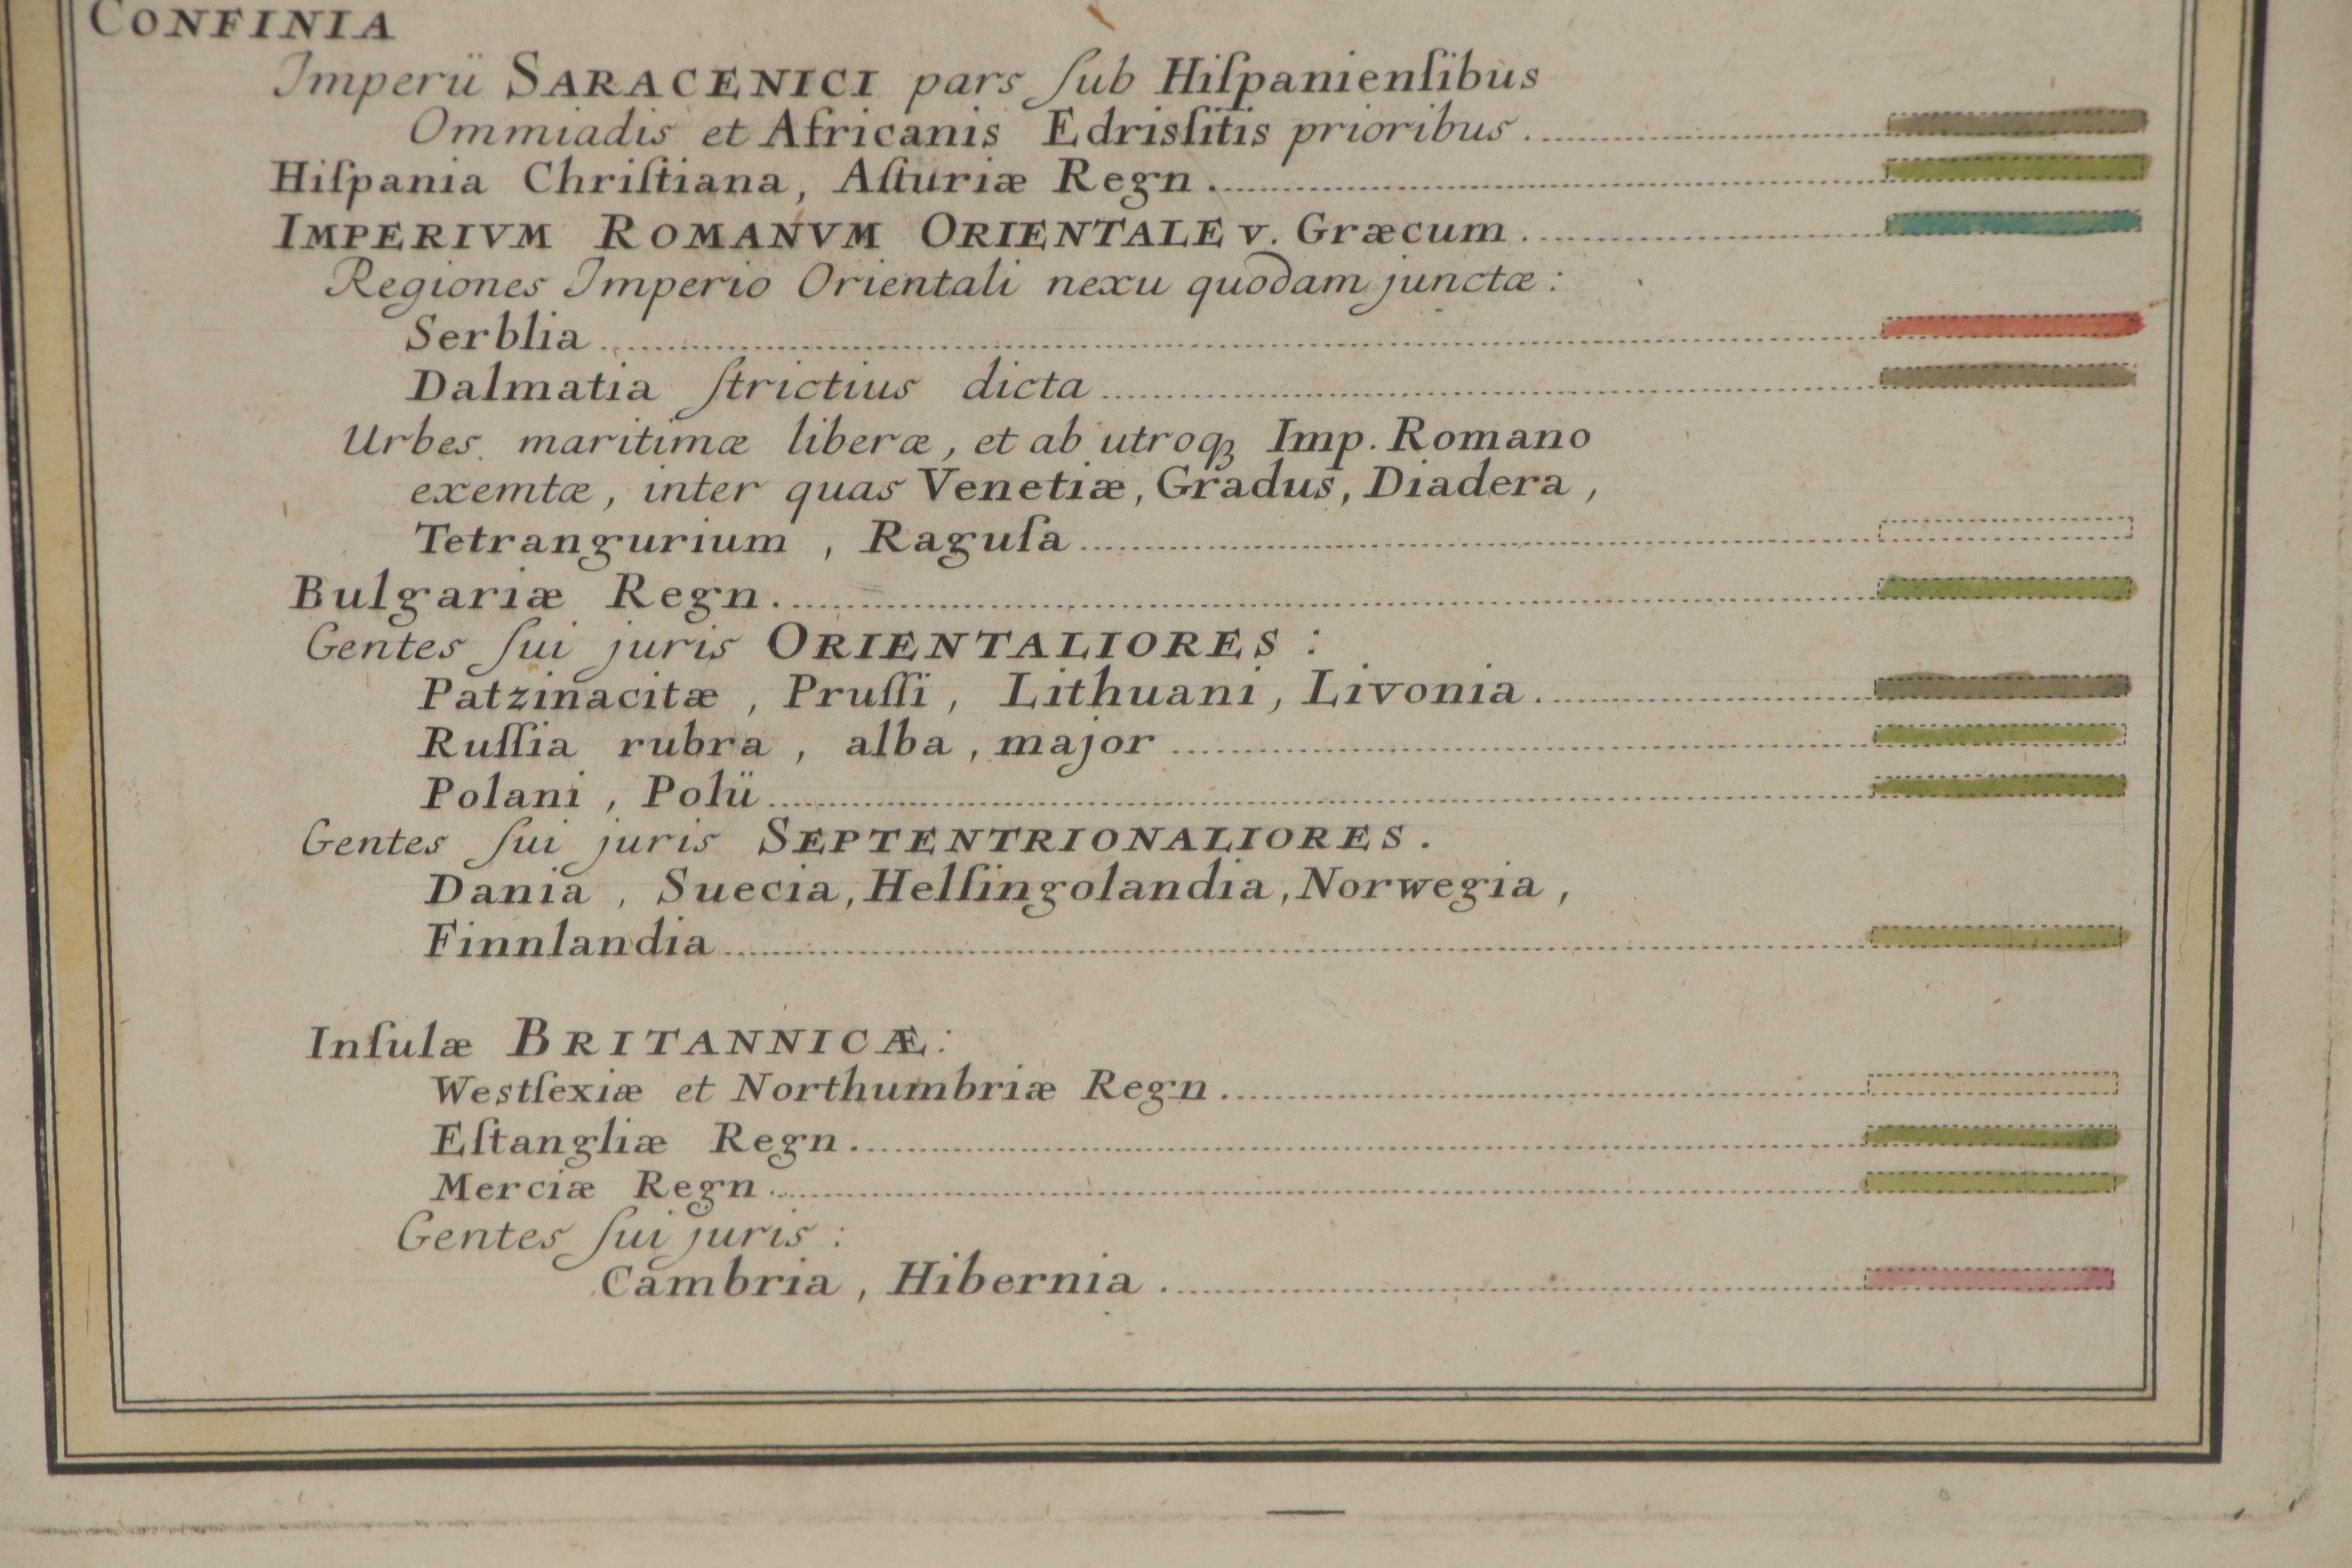 CONFINIA
Imperii SARACENICI pars ſub Hiſpanienſibus
Ommiadis et Africanis Edrisſitis prioribus.
Hiſpania Chriſtiana, Aſturiæ Regn.
IMPERIVM ROMANVM ORIENTALE v. Græcum.
Regiones Imperio Orientali nexu quodam junctæ:
Serblia
Dalmatia ſtrictius dicta
Urbes maritimæ liberæ, et ab utroqꝫ Imp. Romano
exemtæ, inter quas Venetiæ, Gradus, Diadera,
Tetrangurium, Raguſa
Bulgariæ Regn.
Gentes ſui juris ORIENTALIORES:
Patzinacitæ, Pruſſi, Lithuani, Livonia.
Ruſſia rubra, alba, major
Polani, Polii
Gentes ſui juris SEPTENTRIONALIORES.
Dania, Suecia, Helſingolandia, Norwegia,
Finnlandia
Inſulæ BRITANNICÆ:
Westſexiæ et Northumbriæ Regn.
Eſtangliæ Regn.
Merciæ Regn.
Gentes ſui juris:
Cambria, Hibernia.